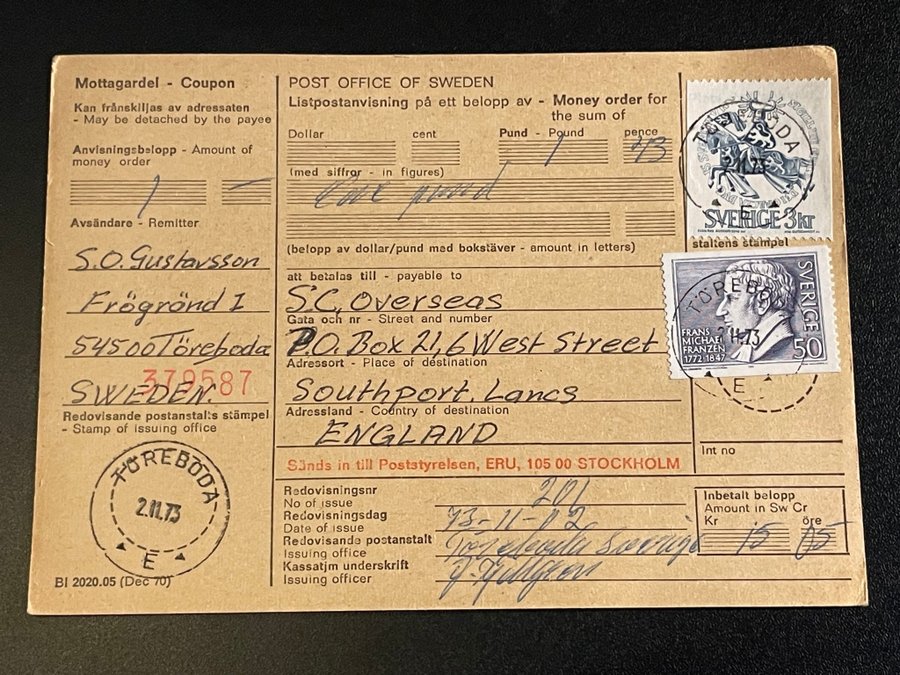 Mottagardel - Coupon
Kan frånskiljas av adressaten
- May be detached by the payee
Anvisningsbelopp - Amount of
money order
1 —
Avsändare - Remitter
S.O. Gustavsson
Frögränd 1
54500 Töreboda
SWEDEN.
379587
Redovisande postanstalts stämpel
- Stamp of issuing office
TÖREBODA
2.11.73
E
BI 2020.05 (Dec 70)
POST OFFICE OF SWEDEN
Listpostanvisning på ett belopp av - Money order for
the sum of
Dollar cent Pund - Pound pence
1 43
(med siffror - in figures)
One pund
(belopp av dollar/pund med bokstäver - amount in letters)
att betalas till - payable to
S.C. Overseas
Gata och nr - Street and number
P.O. Box 21, 6 West Street
Adressort - Place of destination
Southport, Lancs
Adressland - Country of destination
ENGLAND
Sänds in till Poststyrelsen, ERU, 105 00 STOCKHOLM
Redovisningsnr
No of issue
201
Redovisningsdag
Date of issue
73-11-02
Redovisande postanstalt
Issuing office
Töreboda Sverige
Kassatjm underskrift
Issuing officer
TÖREBODA
2.11.73
E
SVERIGE 3kr
staltens stämpel
TÖREBODA
2.11.73
E
SVERIGE
50
FRANS
MICHAEL
FRANZÉN
1772-1847
Int no
Inbetalt belopp
Amount in Sw Cr
Kr öre
15 05